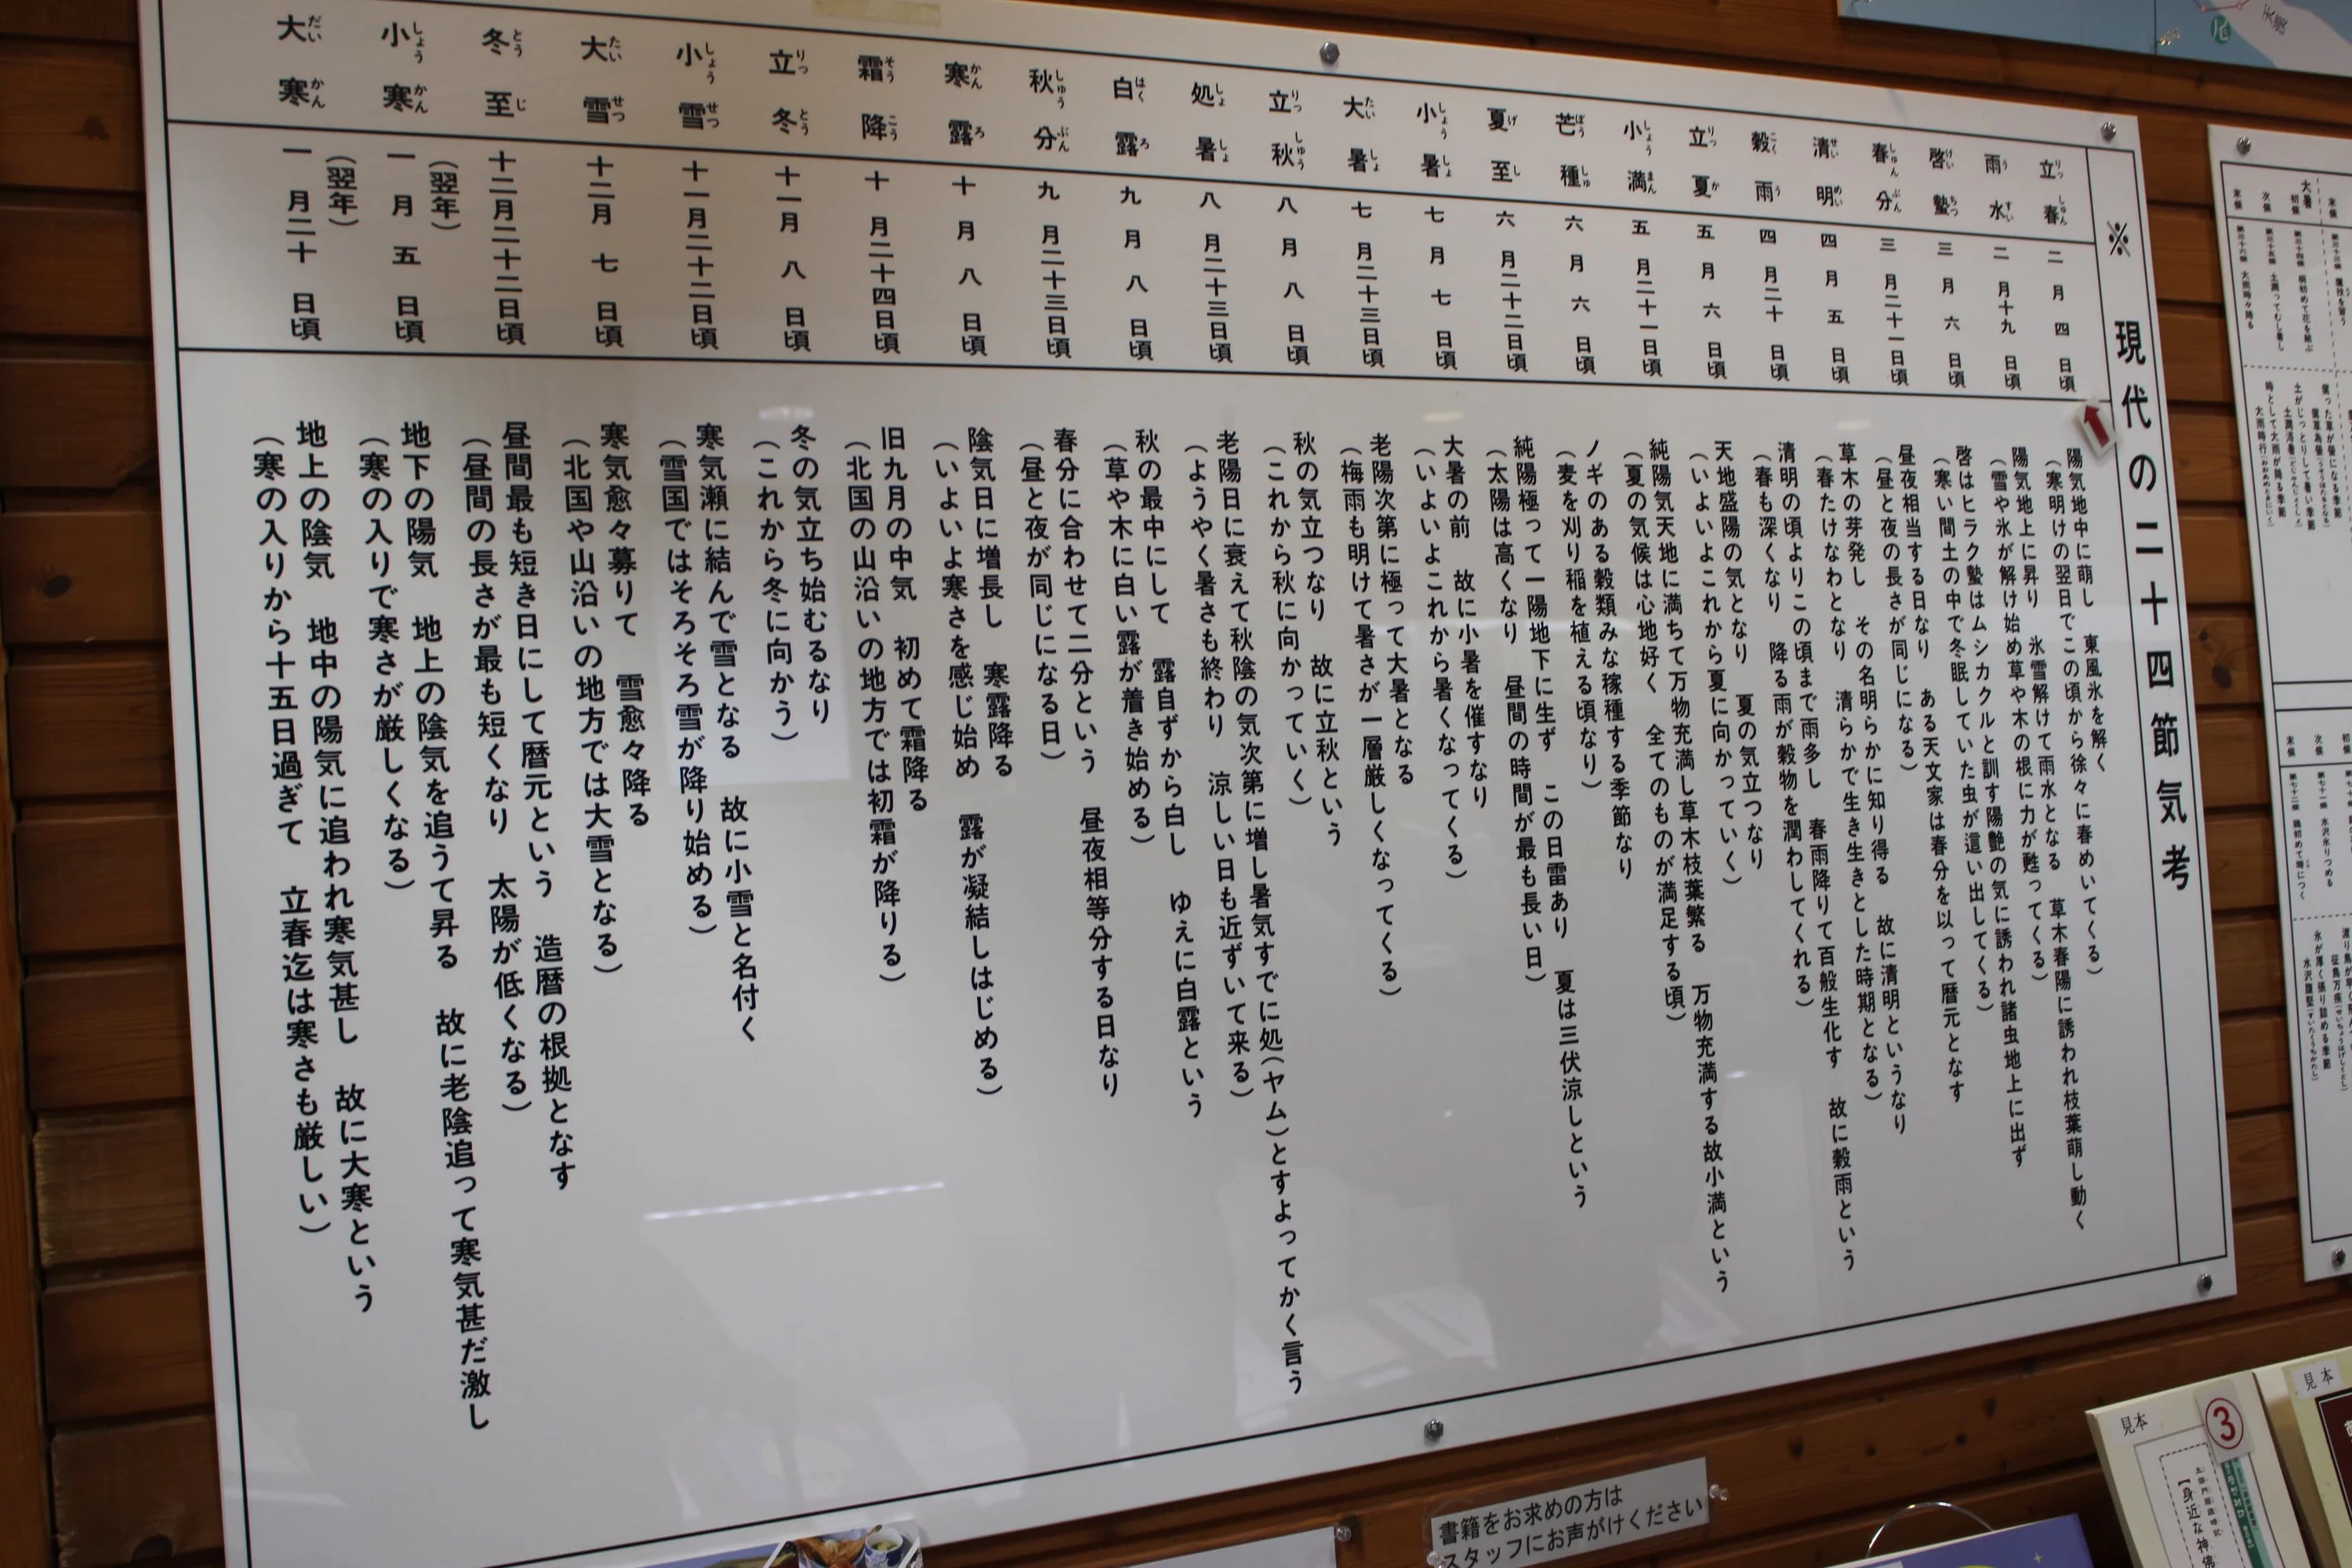 ※ 現代の二十四節気考
立春 りっ しゅん
二月四日頃
陽気地中に萌し 東風氷を解く
(寒明けの翌日でこの頃から徐々に春めいてくる)
雨水 う すい
二月十九日頃
陽気地上に昇り 氷雪解けて雨水となる 草木春陽に誘われ枝葉萌し動く
(雪や氷が解け始め草や木の根に力が甦ってくる)
啓蟄 けい ちつ
三月六日頃
啓はヒラク蟄はムシカクルと訓す陽艶の気に誘われ諸虫地上に出ず
(寒い間土の中で冬眠していた虫が這い出してくる)
春分 しゅん ぶん
三月二十一日頃
昼夜相当する日なり ある天文家は春分を以って暦元となす
(昼と夜の長さが同じになる)
清明 せい めい
四月五日頃
草木の芽発し その名明らかに知り得る 故に清明というなり
(春たけなわとなり 清らかで生き生きとした時期となる)
穀雨 こく う
四月二十日頃
清明の頃よりこの頃まで雨多し 春雨降りて百般生化す 故に穀雨という
(春も深くなり 降る雨が穀物を潤わしてくれる)
立夏 りっ か
五月六日頃
天地盛陽の気となり 夏の気立つなり
(いよいよこれから夏に向かっていく)
小満 しょう まん
五月二十一日頃
純陽気天地に満ちて万物充満し草木枝葉繁る 万物充満する故小満という
(夏の気候は心地好く 全てのものが満足する頃)
芒種 ぼう しゅ
六月六日頃
ノギのある穀類みな稼種する季節なり
(麦を刈り稲を植える頃なり)
夏至 げ し
六月二十二日頃
純陽極って一陽地下に生ず この日雷あり 夏は三伏涼しという
(太陽は高くなり 昼間の時間が最も長い日)
小暑 しょう しょ
七月七日頃
大暑の前 故に小暑を催すなり
(いよいよこれから暑くなってくる)
大暑 たい しょ
七月二十三日頃
老陽次第に極って大暑となる
(梅雨も明けて暑さが一層厳しくなってくる)
立秋 りっ しゅう
八月八日頃
秋の気立つなり 故に立秋という
(これから秋に向かっていく)
処暑 しょ しょ
八月二十三日頃
老陽日に衰えて秋陰の気次第に増し暑気すでに処(ヤム)とすよってかく言う
(ようやく暑さも終わり 涼しい日も近ずいて来る)
白露 はく ろ
九月八日頃
秋の最中にして 露自ずから白し ゆえに白露という
(草や木に白い露が着き始める)
秋分 しゅう ぶん
九月二十三日頃
春分に合わせて二分という 昼夜相等分する日なり
(昼と夜が同じになる日)
寒露 かん ろ
十月八日頃
陰気日に増長し 寒露降る
(いよいよ寒さを感じ始め 露が凝結しはじめる)
霜降 そう こう
十月二十四日頃
旧九月の中気 初めて霜降る
(北国の山沿いの地方では初霜が降りる)
立冬 りっ とう
十一月八日頃
冬の気立ち始むるなり
(これから冬に向かう)
小雪 しょう せつ
十一月二十二日頃
寒気瀬に結んで雪となる 故に小雪と名付く
(雪国ではそろそろ雪が降り始める)
大雪 たい せつ
十二月七日頃
寒気愈々募りて 雪愈々降る
(北国や山沿いの地方では大雪となる)
冬至 とう じ
十二月二十二日頃
昼間最も短き日にして暦元という 造暦の根拠となす
(昼間の長さが最も短くなり 太陽が低くなる)
小寒 しょう かん
(翌年)
一月五日頃
地下の陽気 地上の陰気を追うて昇る 故に老陰追って寒気甚だ激し
(寒の入りで寒さが厳しくなる)
大寒 だい かん
(翌年)
一月二十日頃
地上の陰気 地中の陽気に追われ寒気甚し 故に大寒という
(寒の入りから十五日過ぎて 立春迄は寒さも厳しい)
書籍をお求めの方は
スタッフにお声がけください
見本
③
見本